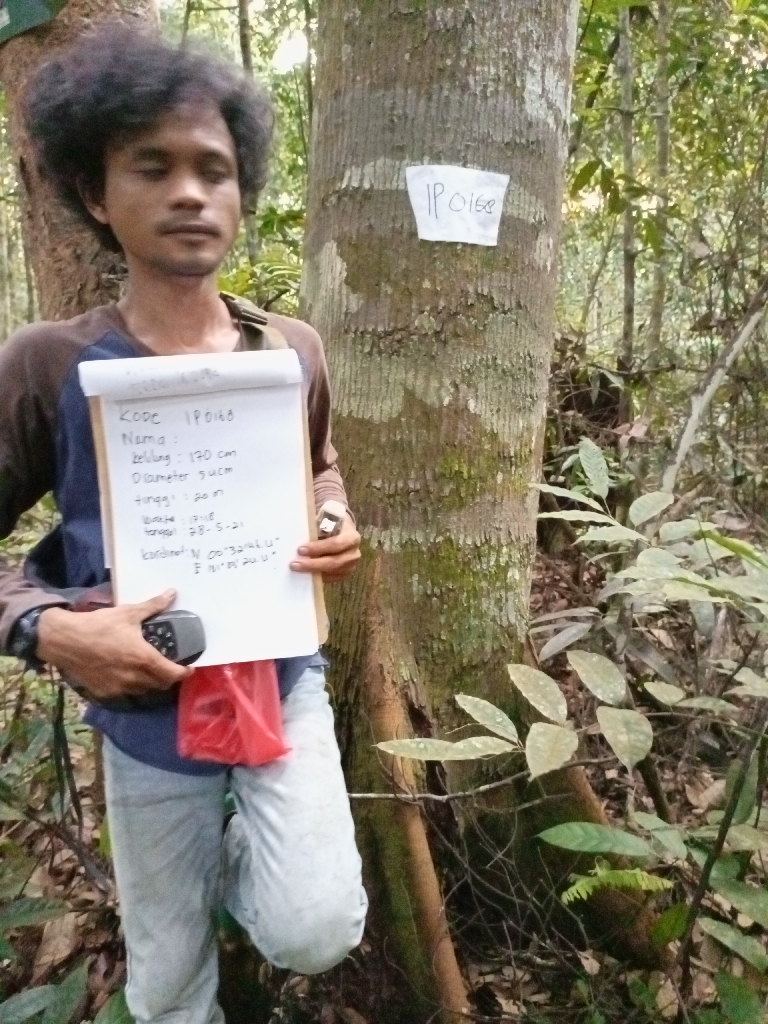 IP 0168
Kode IP 0168
Nama :
keliling : 170 cm
Diameter 54 cm
tinggi : 20 m
: 17:18
tanggal : 28-5-21
kordinat : N 00°32'
E